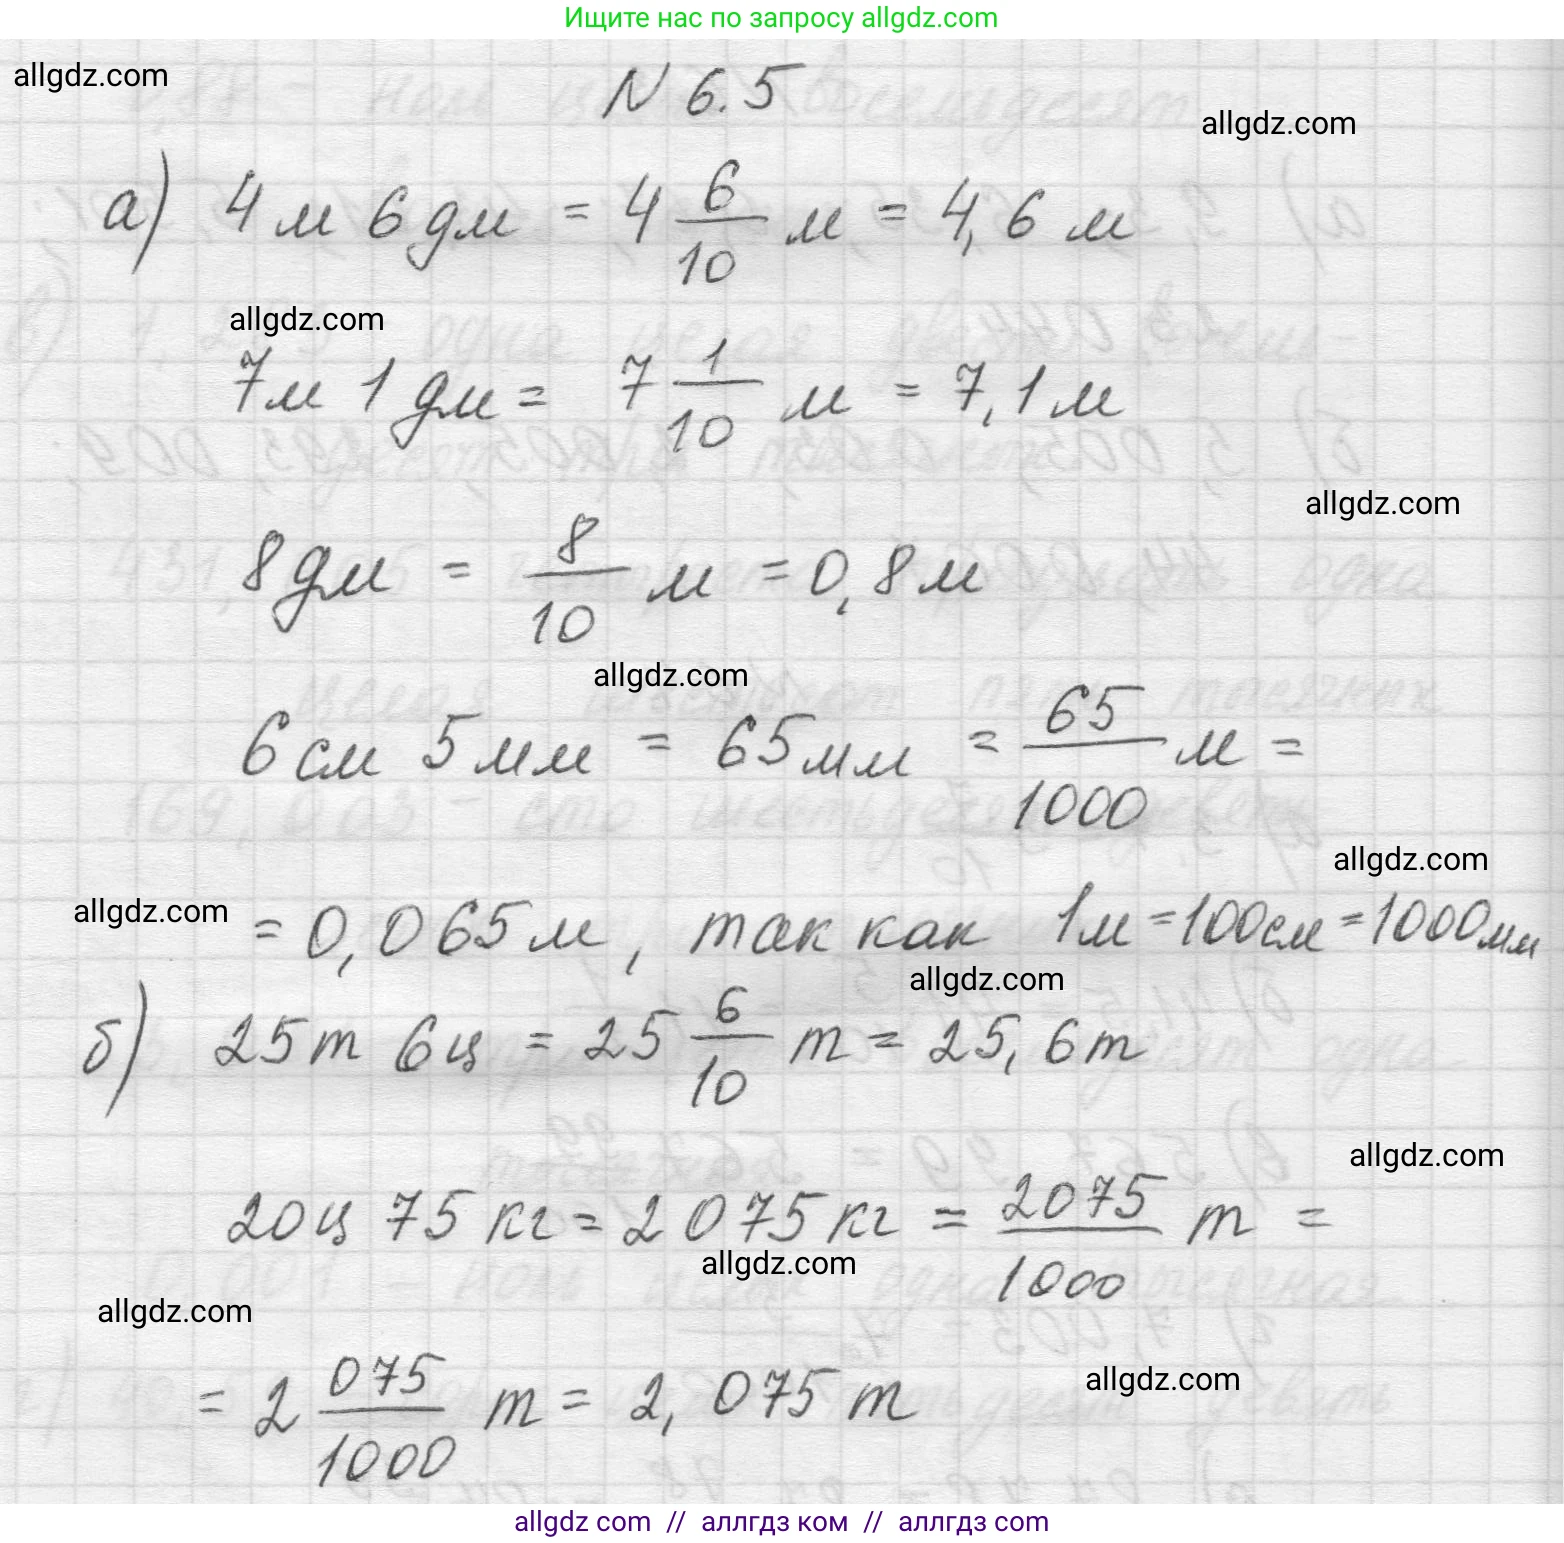 Ищите нас по запросу allgdz.com
allgdz.com
N 6.5
allgdz.com
а) 4 м 6 дм = 4 6/10 м = 4,6 м
allgdz.com
7м 1 дм = 7 1/10 м = 7,1 м
allgdz.com
8 дм = 8/10 м = 0,8 м
allgdz.com
6 см 5 мм = 65 мм = 65/1000 м =
allgdz.com
allgdz.com
= 0,065 м, так как 1м = 100см = 1000мм
allgdz.com
б) 25 т 6 ц = 25 6/10 т = 25,6 т
allgdz.com
20 ц 75 кг = 2075 кг = 2075/1000 т =
allgdz.com
allgdz.com
= 2 075/1000 т = 2,075 т
allgdz.com
allgdz com // аллгдз ком // аллгдз com